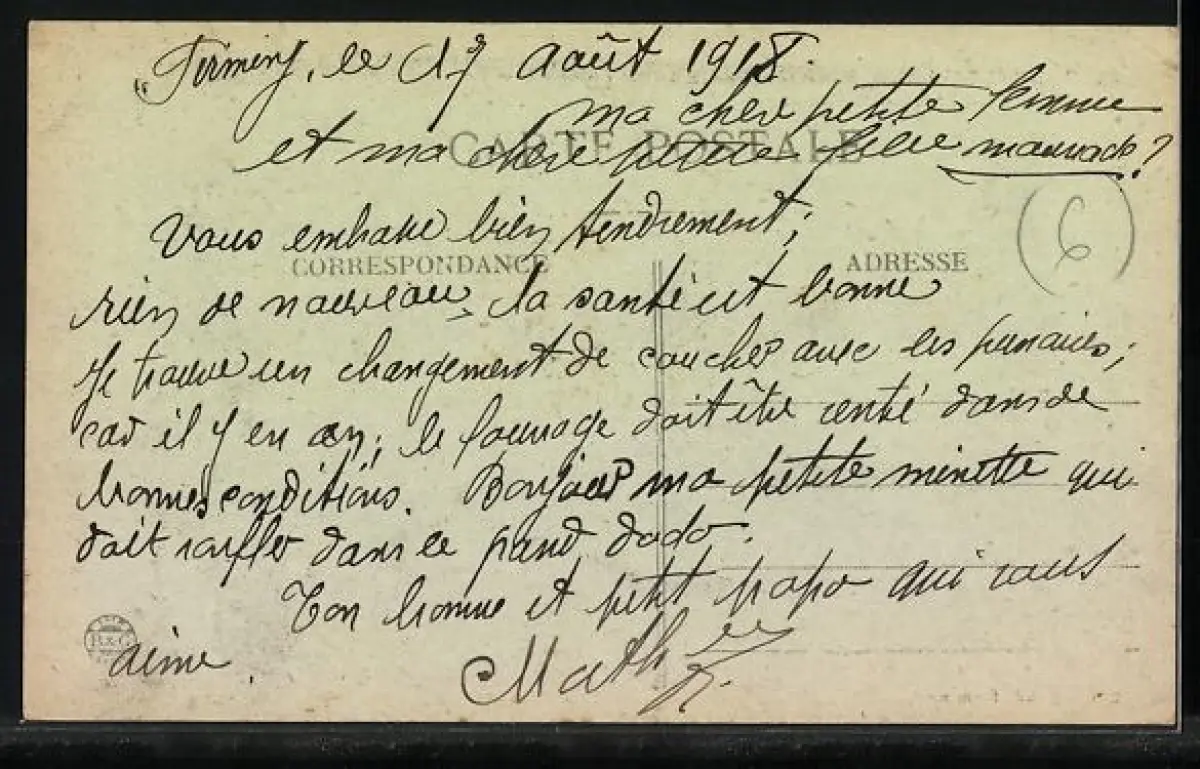 Firminy, le 17 Août 1918.
ma chère petite femme
CARTE POSTALE
et ma chère petite fille
Vous embrasse bien tendrement;
CORRESPONDANCE
ADRESSE
6
rien de nouveau, la santé est bonne
Je trouve un changement de coucher avec les punaises;
car il y en a; le fourrage doit être rentré dans de
bonnes conditions. Bonjour ma petite minette qui
doit ronfler dans le grand dodo.
Ton homme et petit papa qui vous
aime
B & G
Math